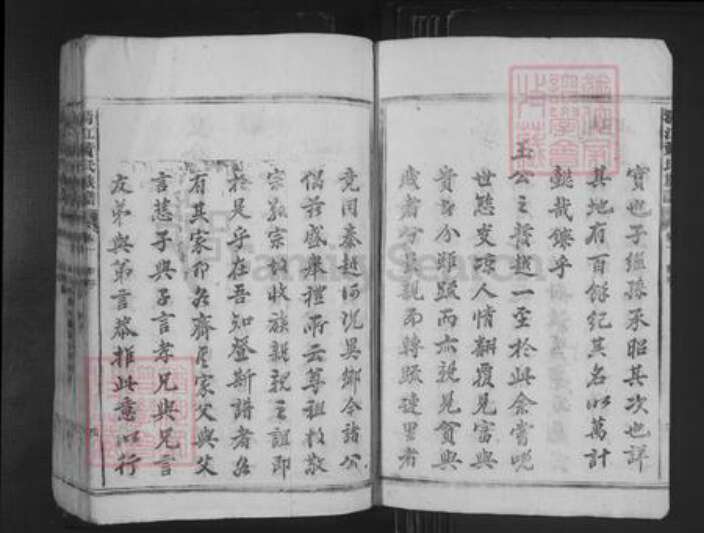 寶也子繼孫承昭其次也詳
其地有百餘紀其名以萬計
懿哉鑠乎
玉公之哲越一至於此余嘗
世態交頹人情翻覆見富與
貴者分踈踈而亦親見貧與
賤者分員親而轉踈連里者
竟同秦越河況異鄉今諸公
偕莅盛舉禮所云尊祖故敬
宗敬宗故收族親親之誼即
於是乎在吾知登斯譜者各
有其家即各齊家父與父
言慈子與子言孝兄與兄言
友弟與弟言恭推此意以行
黃氏族譜
FamilySearch